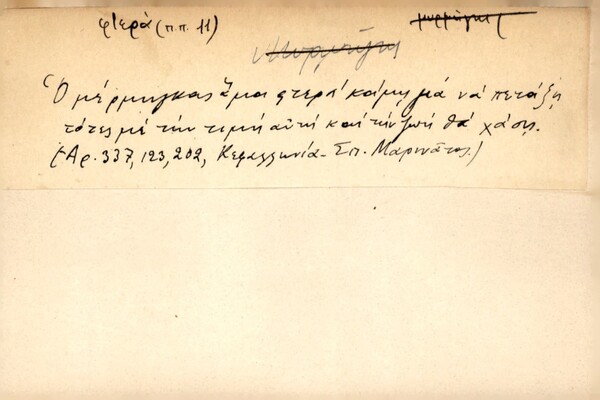 φτερά (π.π. 11)
μυρμήγκι
Ὁ μέρμηγκας ἅμα φτερά κάμῃ γιά νά πετάξῃ
τότες μέ τήν τιμή αὐτή καί τήν ζωή θά χάσῃ.
(Ἀρ. 337, 123, 202, Κεφαλλωνιά - Σπ. Μαρινᾶτος.)